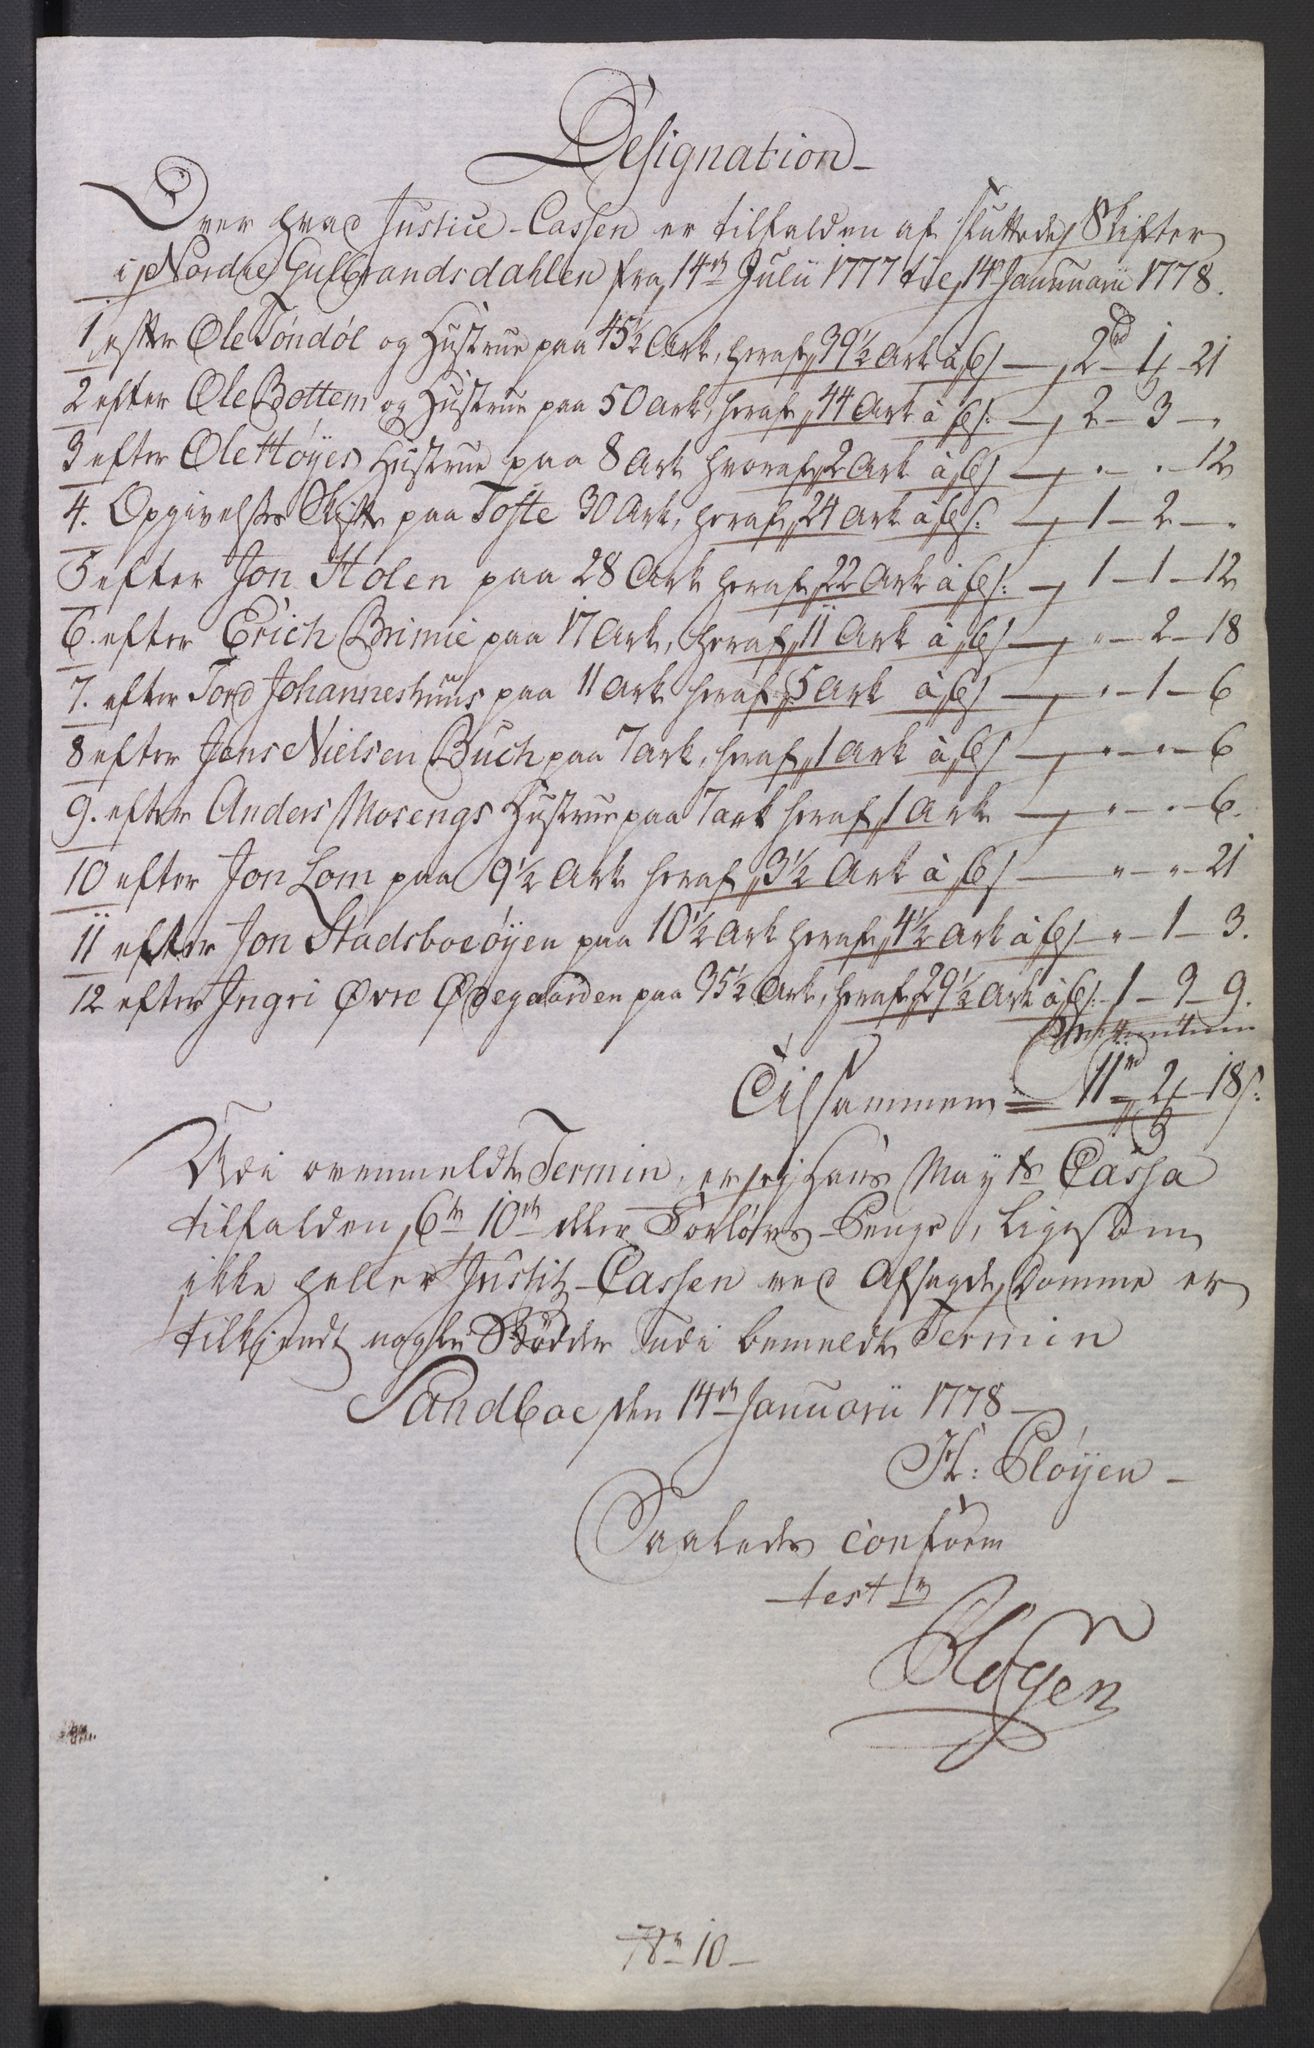 Designation
Over hvad Justice-Cassen er tilfalden af sluttede Skifter
i Nordre Gulbrandsdahlen fra 14de Julii 1777 til 14 Januarii 1778.
1 efter Ole Töndöl og Hustrue paa 45½ Ark, heraf 39½ Ark à 6 s — 2 rd 1 21
2 efter Ole Bottem og Hustrue paa 50 Ark, heraf 44 Ark à 6 s: — 2 — 3 — "
3 efter Ole Høyes Hustrue paa 8 Ark hvoraf 2 Ark à 6 s — " — " — 12
4. Opgivelses Skifte paa Tofte 30 Ark, heraf 24 Ark à 6 s: — 1 — 2 — "
5 efter Jon Holen paa 28 Ark heraf 22 Ark à 6 s: — 1 — 1 — 12
6. efter Erich Brimie paa 17 Ark, heraf 11 Ark à 6 s — " — 2 — 18
7. efter Tord Johanneshuus paa 11 Ark heraf 5 Ark à 6 s — " — 1 — 6
8 efter Jens Nielsen Buch paa 7 Ark, heraf 1 Ark à 6 s — " — " — 6
9. efter Anders Mosengs Hustrue paa 7 Ark heraf 1 Ark — " — " — 6.
10 efter Jon Lom paa 9½ Ark heraf 3½ Ark à 6 s — " — " — 21
11 efter Jon Stadsboeöyen paa 10½ Ark heraf 4½ Ark à 6 s — " — 1 — 3.
12 efter Ingri Øvre Ødegaarden paa 35½ Ark, heraf 29½ Ark à 6 s: — 1 — 3 — 9.
Tilsammen = 11 rd 2 18 s:
Udi ovenmeldte Termin, er ey Hans Mayts Cassa
tilfalden 6te 10de eller Forlovs-Penge, ligesom
ikke heller Justitz-Cassen ved Afsagde Domme er
tilkiendt nogle Bödder udi bemeldte Termin
Sandboe den 14de Januarii 1778 —
H: Plöyen —
Saaledes conform
test
Pløyen
10 —